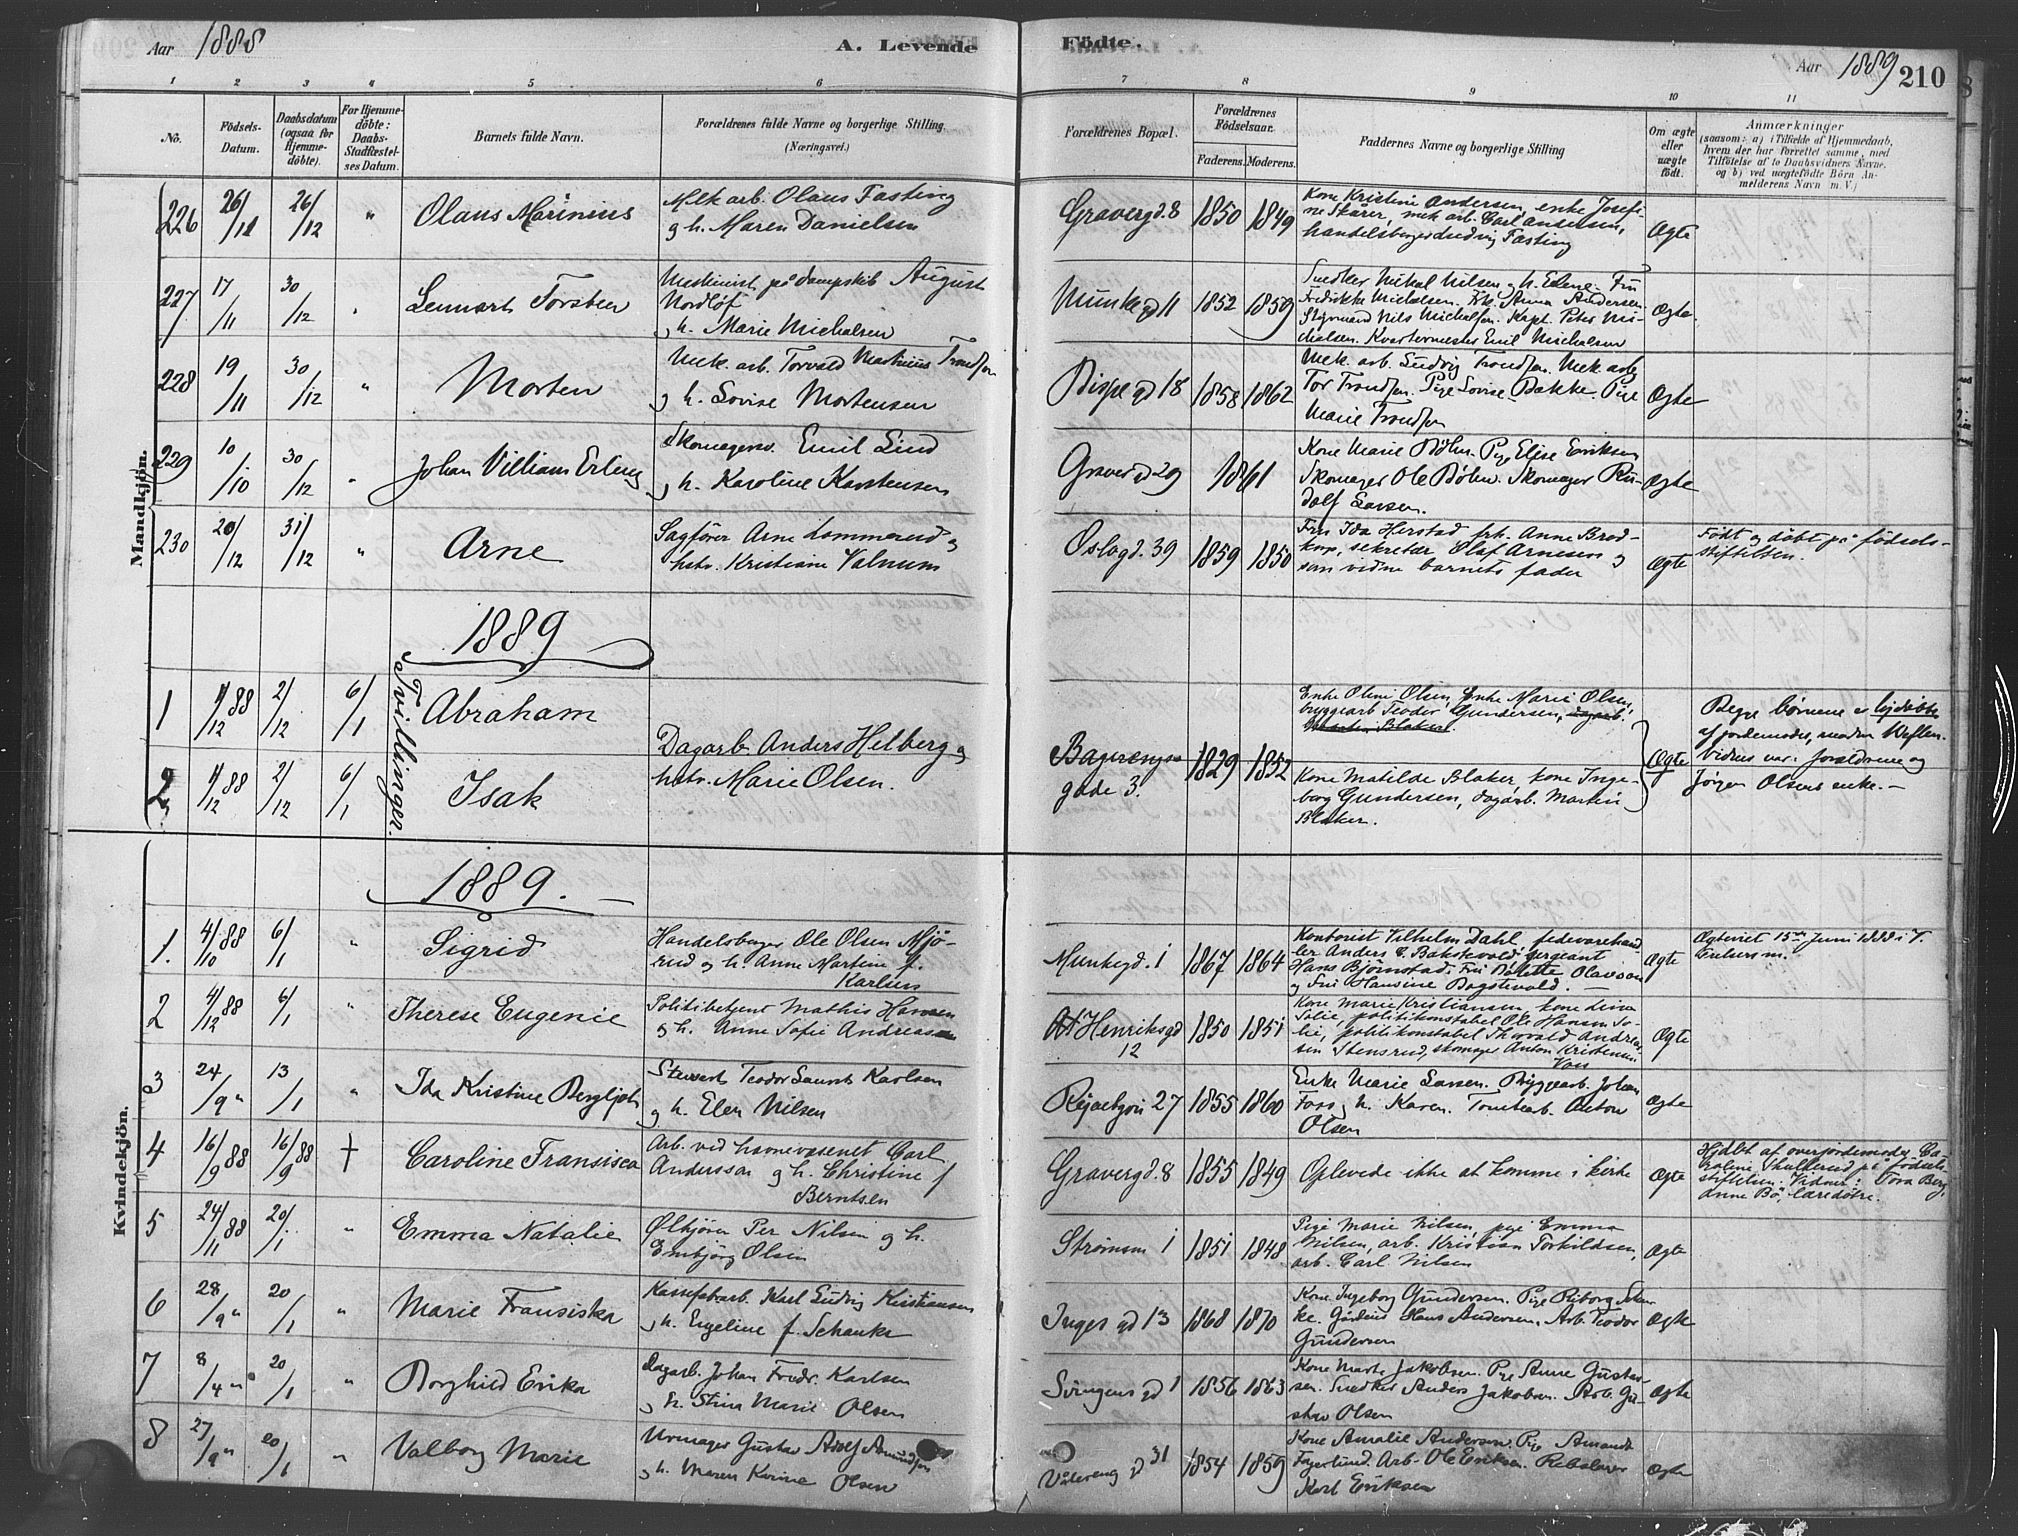 Aar 1888
A. Levende
Födte.
Aar 1889
210
1 2 3 4 5 6 7 8 9 10 11
No.
Födsels-
Datum.
Daabsdatum
(ogsaa for
Hjemme-
döbte).
For Hjemme-
döbte:
Daabs-
Stadfæstel-
ses Datum.
Barnets fulde Navn.
Forældrenes fulde Navne og borgerlige Stilling.
(Næringsvei.)
Forældrenes Bopæl.
Forældrenes
Födselsaar.
Faderens. Moderens.
Faddernes Navne og borgerlige Stilling
Om ægte
eller
uægte
födt.
Anmærkninger
(saasom: a) i Tilfælde af Hjemmedaab,
hvem der har forrettet samme, med
Tilföielse af to Daabsvidners Navne,
og b) ved uægtefödte Börn An-
melderens Navn m. V.)
Mandkjön.
226 26/11 26/12 " Olaus Marinius
Mek arb. Olaus Fasting
og h. Maren Danielsen
Graverg d. 8 1850 1849
Kone Kristine Andersen, enke Josefi-
ne Skarer, mek arb. Carl Andersen,
handelsborger Ludvig Fasting
Ægte
227 17/11 30/12 " Lennart Torsten
Maskinist på dampskib August
Nordlöf
og h. Marie Michalsen
Munkegd 11 1852 1859
Snedker Mikal Nilsen og h. Elene. Fru
Fredrikke Michalsen. Frk. Anna Andersen
Styrmand Nils Michalsen. Kapt. Peter Mi-
chalsen. Kvartermester Emil Michalsen
Ægte.
228 19/11 30/12 " Morten
Mek. arb. Torvald Martinius Trondsen
og h. Lovise Mortensen
Bispegd 18 1858 1862
Mek. arb. Ludvig Trondsen. Mek arb
Tor Trondsen. Pige Lovise Bakke. Pige
Marie Trondsen
Ægte
229 10/10 30/12 " Johan Villiam Erling
Skomagersv. Emil Lind
og h. Karoline Karstensen
Gravergd 29 1861
Kone Marie Böhn. Pige Elise Eriksen
Skomager Ole Böhn. Skomager Ru-
dolf Larsen.
Ægte
230 20/12 31/12 " Arne
Sagförer Arne Lommerud og
hstr. Kristiane Valnum
Oslogd. 39 1859 1850
Fru Ida Herstad frk. Anne Brod-
korp, sekretær Olaf Arnesen og
som vidne barnets fader
Ægte
Födt og döbt på födsels-
stiftelsen.
1889
Tvillinger.
1 11/12 88 2/12 6/1 Abraham
2 11/12 88 2/12 6/1 Isak
Dagarb Anders Helberg og
hstr. Marie Olsen.
Bagerengen
gade 3. 1829 1852
Enke Oline Olsen, Enke Marie Olsen,
bryggearb Teodor Gundersen, dagarb.
Martin Blaker.
Kone Matilde Blaker, kone Inge-
borg Gundersen, dagarb. Martin
Blaker.
Ægte
Begge börnene er hjdöbte
af jordemoder, madam
Vidner var: foreldrene og
Jörgen Olsens enke. —
Kvindekjön.
1889. —
1. 4/10 88 6/1 " Sigrid
Handelsborger Ole Olsen Mjö-
rud og h. Anne Martine f.
Karlsen
Munkegd. 1 1867 1864
Kontorist Vilhelm Dahl, fedevarehand
ler Anders E. Bakstevold, sergeant
Hans Björnstad. Fru Bolette Olavson
og Fru Hansine Bogstevold. —
Ægte
Ægteviet 15de Juni 1888 i
2 4/12 88 6/1 " Therese Eugenie
Politibetjent Mathis Hansen
og h. Anne Sofie Andreassen
St Henriksgd
12 1850 1851
Kone Marie Kristiansen, kone Lina
Solie, politikonstabel Ole Hansen So-
lie, politikonstabel Thorvald Andreas-
sen Stensrud, skomager Anton Kristensen
Vaas
Ægte
3 24/9 " 13/1 " Ida Kristine Bergljot
Stuert Teodor Laurits Karlsen
og h. Elen Nilsen
27 1855 1860
Enke Marie Larsen. Bryggearb. Johan
Foss og h. Karen. Tomtearb. Anton
Olsen
Ægte
4 16/9 88 16/9 88 † Caroline Fransisca
Arb. ved havnevæsenet Carl
Anderssen og h. Christine f
Berntsen
Graverg d. 8 1855 1849
Oplevede ikke at komme i kirke
Ægte
Hjdöbt af overjordemoder Ca-
roline Skullerud på födsels-
stiftelsen. Vidner: Tora Berg,
Anne Bö, læredötre.
5 24/11 88 20/1 " Emma Natalie
Ölkjörer Per Nilsen og h.
Embjörg Olsen
Strömsv 1 1851 1848
Pige Marie Nilsen, pige Emma
Nilsen, arb. Kristian Torkildsen,
arb. Carl Nilsen
Ægte
6 28/9 " 20/1 " Marie Fransiska
Kassefabarb. Karl Ludvig Kristiansen
og h. Engeline f. Schanke
Inges gd 13 1868 1870
Kone Ingeborg Gundersen. Pige Riborg Schan
ke. Gårdeier Hans Andersen. Arb. Teodor
Gundersen
Ægte
7 8/4 " 20/1 " Borghild Erika
Dagarb. Johan Fredr. Karlsen
og h. Stina Marie Olsen
Svingens gd 1 1856 1863
Kone Marte Jakobsen. Pige Anne Gustav
sen. Snedker Anders Jakobsen. Arb. Gu-
stav Olsen
Ægte
8 27/9 " 20/1 " Valborg Marie
Urmager Gustav Adolf Amundsen
og h. Maren Karine Olsen
Vålereng gd 31 1854 1859
Kone Amalie Andersen. Pige Amanda
Fagerlund. Arb. Ole Eriksen. Rebslager
Karl Eriksen
Ægte